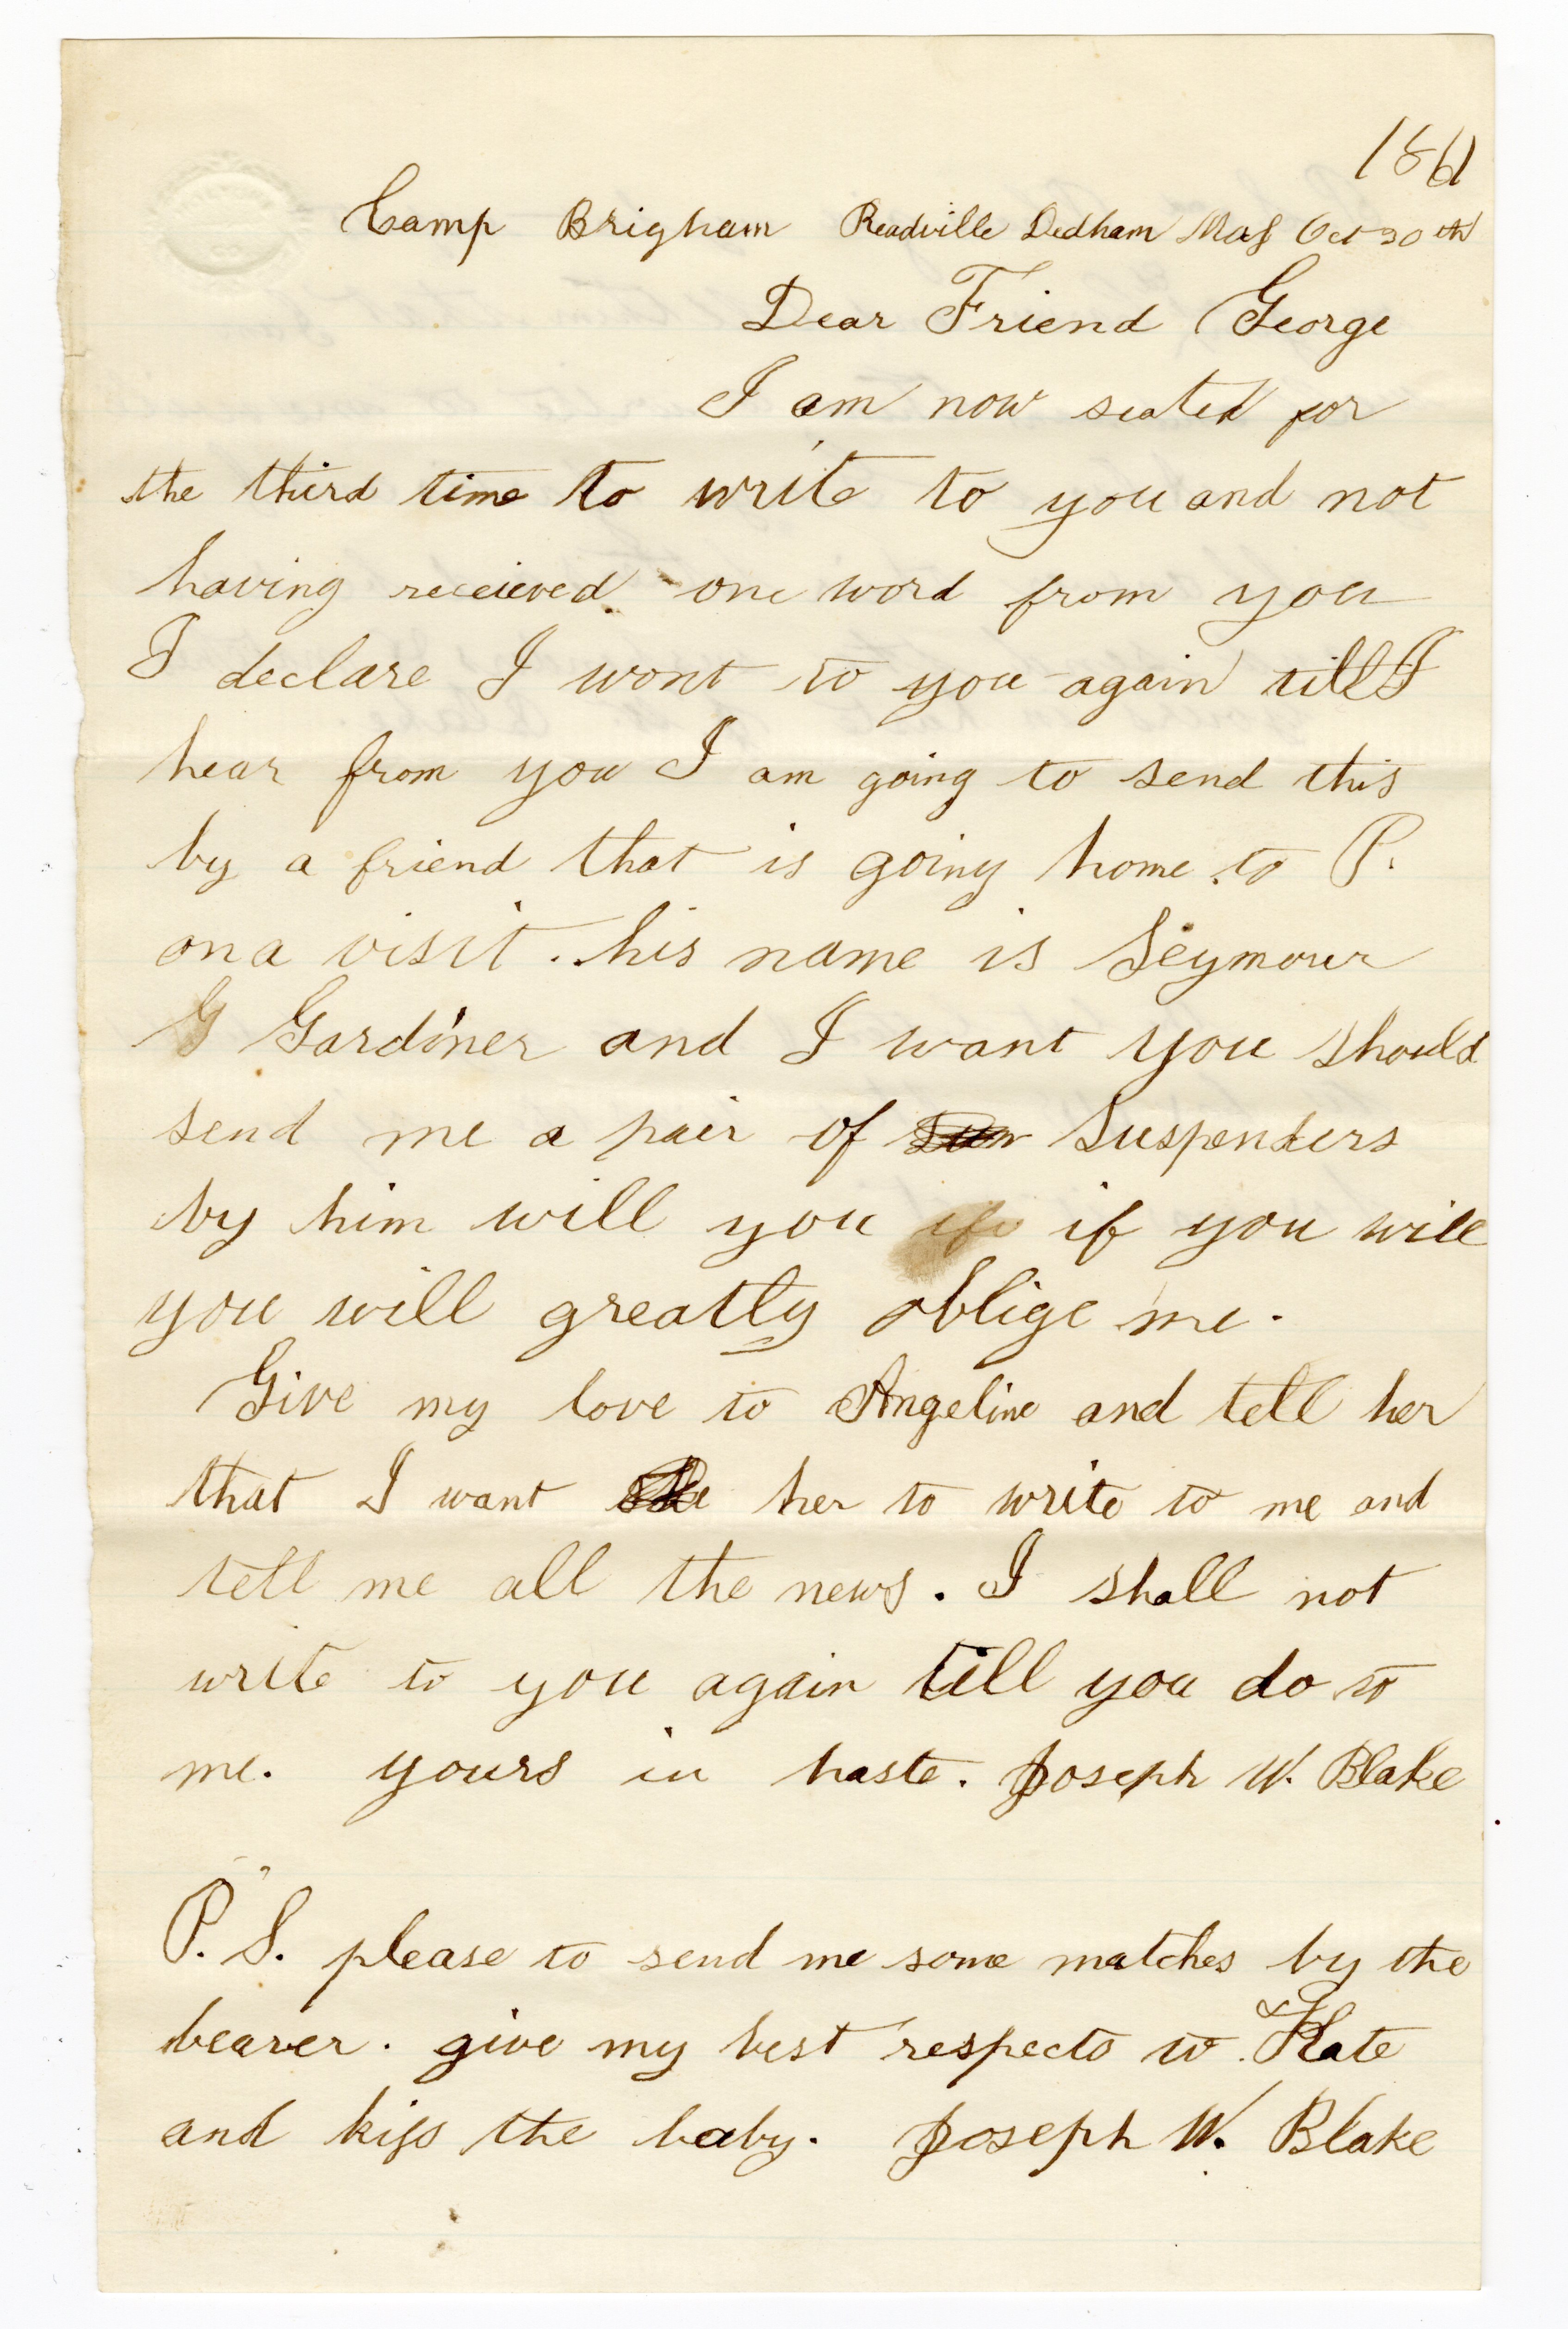 1861
Camp Brigham Readville Dedham Mass Oct 20th
Dear Friend George
I am now seated for
the third time to write to you and not
having receieved one word from you
I declare I wont to you again till I
hear from you I am going to send this
by a friend that is going home to P.
on a visit. his name is Seymour
G Gardiner and I want you should
send me a pair of Suspenders
by him will you if if you will
you will greatly oblige me.
Give my love to Angeline and tell her
that I want her to write to me and
tell me all the news. I shall not
write to you again till you do to
me. yours in haste. Joseph W. Blake
P. S. please to send me some matches by the
bearer. give my best respects to Kate
and kiss the baby. Joseph W. Blake